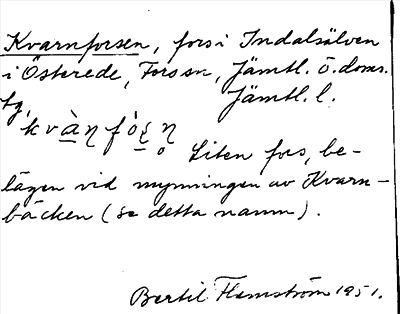 Kvarnforsen, fors i Indalsälven
i Österede, Forssn, Jämtl. ö. doms.
tg, Jämtl. l.
kvàɳfòṣɳ̥
Liten fors, be-
lägen vid mynningen av Kvarn-
bäcken (se detta namn).
Bertil Flemström 1951.